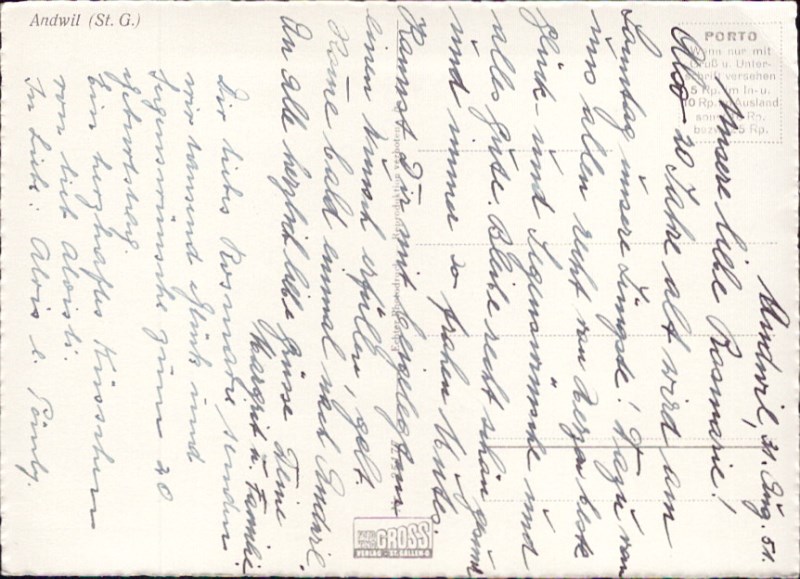 Andwil (St. G.)
PORTO
Wenn nur mit
Gruß u. Unter-
schrift versehen
5 Rp. im In- u.
10 Rp. Ausland
sonst Rp.
bezw. 25 Rp.
Andwil, 31. Aug. 51.
Unsere liebe Rosmarie!
Also 20 Jahre alt wird am
Samstag unsere Jüngste! Dazu von
uns allen recht von Herzen
Glück und Segenswünsche und
alles Gute. Bleibe recht schön gsund
und immer so frohen Mutes.
Kannst Dir mit beigelegtem
einen Wunsch erfüllen, gelt.
Komme bald einmal nach Andwil.
An alle herzlich liebe Grüsse Deine
Margrit u. Familie.
Dir liebes Rosmarie senden
wir tausend Glück und
Segenswünsche zum 20
Geburtstag.
Ein herzhaftes Küsschen
von dich Aloisli.
In Liebe: Alois u.
GROSS
VERLAG - ST. GALLEN-O